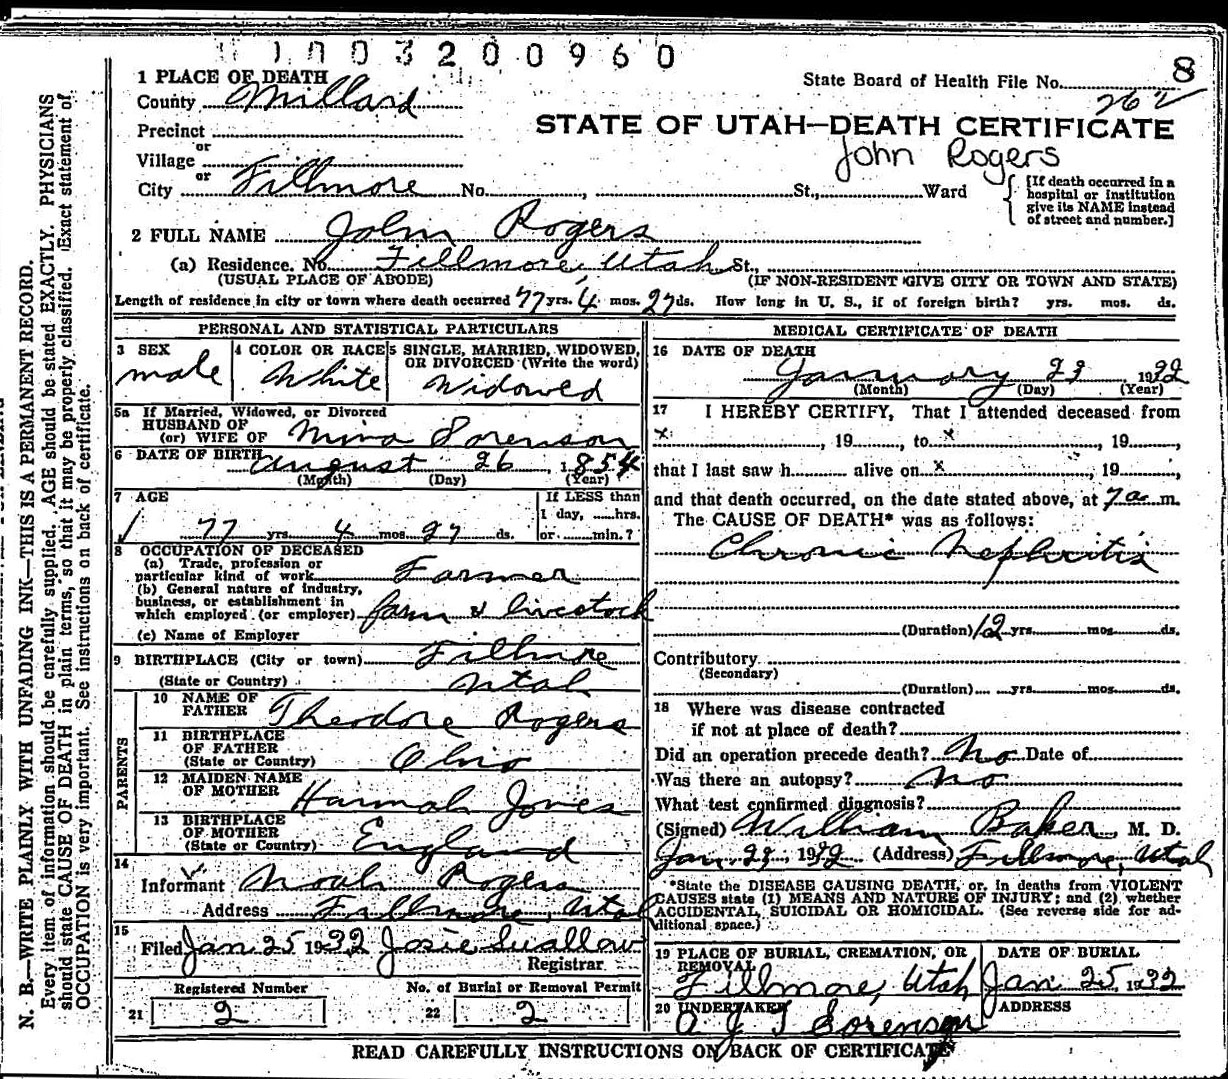 1003200960
8
1 PLACE OF DEATH
State Board of Health File No. 262
County Millard
STATE OF UTAH—DEATH CERTIFICATE
John Rogers
Precinct
or
Village
or
City Fillmore No. , St., Ward
[If death occurred in a hospital or institution give its NAME instead of street and number.]
2 FULL NAME John Rogers
(a) Residence. No. Fillmore, Utah St.,
(USUAL PLACE OF ABODE) (IF NON-RESIDENT GIVE CITY OR TOWN AND STATE)
Length of residence in city or town where death occurred 77 yrs. 4 mos. 27 ds. How long in U. S., if of foreign birth? yrs. mos. ds.
PERSONAL AND STATISTICAL PARTICULARS
3 SEX
male
4 COLOR OR RACE
White
5 SINGLE, MARRIED, WIDOWED, OR DIVORCED (Write the word)
Widowed
5a If Married, Widowed, or Divorced
HUSBAND OF
(or) WIFE OF Mina Sorenson
6 DATE OF BIRTH August 26, 1854
(Month) (Day) (Year)
7 AGE
77 yrs. 4 mos. 27 ds.
If LESS than
1 day, hrs.
or min.?
8 OCCUPATION OF DECEASED
(a) Trade, profession or
particular kind of work Farmer
(b) General nature of industry,
business, or establishment in
which employed (or employer) farm & livestock
(c) Name of Employer
9 BIRTHPLACE (City or town) Fillmore
(State or Country) Utah
PARENTS
10 NAME OF
FATHER Theodore Rogers
11 BIRTHPLACE
OF FATHER
(State or Country) Ohio
12 MAIDEN NAME
OF MOTHER Hannah Jones
13 BIRTHPLACE
OF MOTHER
(State or Country) England
14
Informant Noah Rogers
Address Fillmore, Utah
15
Filed Jan 25 1932 Josie Swallow
Registrar
Registered Number
21 2
No. of Burial or Removal Permit
22 2
MEDICAL CERTIFICATE OF DEATH
16 DATE OF DEATH
January 23 1932
(Month) (Day) (Year)
17 I HEREBY CERTIFY, That I attended deceased from
x , 19 , to x , 19 ,
that I last saw h alive on x , 19 ,
and that death occurred, on the date stated above, at 7 a. m.
The CAUSE OF DEATH* was as follows:
Chronic Nephritis
(Duration) 12 yrs. mos. ds.
Contributory
(Secondary)
(Duration) yrs. mos. ds.
18 Where was disease contracted
if not at place of death?
Did an operation precede death? No Date of
Was there an autopsy? no
What test confirmed diagnosis?
(Signed) William Baker, M. D.
Jan. 23, 1932 (Address) Fillmore, Utah
*State the DISEASE CAUSING DEATH, or, in deaths from VIOLENT
CAUSES state (1) MEANS AND NATURE OF INJURY; and (2) whether
ACCIDENTAL, SUICIDAL OR HOMICIDAL. (See reverse side for ad-
ditional space.)
19 PLACE OF BURIAL, CREMATION, OR
REMOVAL
Fillmore, Utah
DATE OF BURIAL
Jan. 25, 1932
20 UNDERTAKER
A J T Sorenson
ADDRESS
READ CAREFULLY INSTRUCTIONS ON BACK OF CERTIFICATE
N. B.—WRITE PLAINLY WITH UNFADING INK—THIS IS A PERMANENT RECORD.
Every item of information should be carefully supplied. AGE should be stated EXACTLY. PHYSICIANS
should state CAUSE OF DEATH in plain terms, so that it may be properly classified. Exact statement of
OCCUPATION is very important. See instructions on back of certificate.